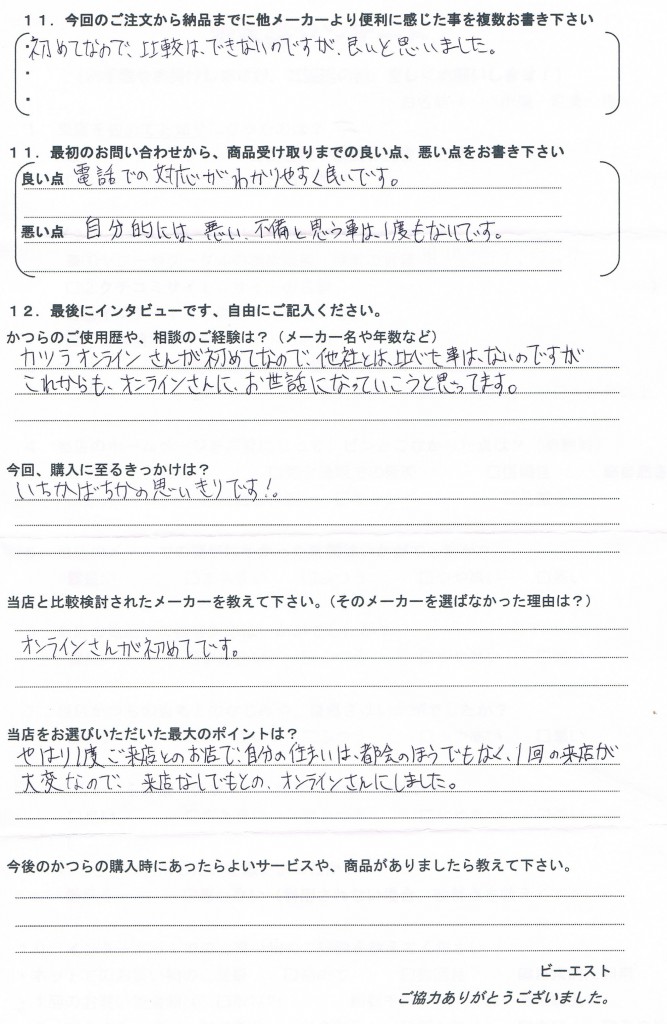 １１．今回のご注文から納品までに他メーカーより便利に感じた事を複数お書き下さい
・初めてなので、比較は、できないのですが、良いと思いました。
・
・
１１．最初のお問い合わせから、商品受け取りまでの良い点、悪い点をお書き下さい
良い点 電話での対応がわかりやすく良いです。
悪い点 自分的には、悪い、不備と思う事は、1度もないです。
１２．最後にインタビューです、自由にご記入ください。
かつらのご使用歴や、相談のご経験は？（メーカー名や年数など）
カツラオンラインさんが初めてなので、他社とは、比べた事は、ないのですが
これからも、オンラインさんに、お世話になっていこうと思ってます。
今回、購入に至るきっかけは？
いちかばちかの思いきりです!。
当店と比較検討されたメーカーを教えて下さい。（そのメーカーを選ばなかった理由は？）
オンラインさんが初めてです。
当店をお選びいただいた最大のポイントは？
やはり1度ご来店とのお店で、自分の住まいは、都会のほうでもなく、1回の来店が
大変なので、来店なしでもとの、オンラインさんにしました。
今後のかつらの購入時にあったらよいサービスや、商品がありましたら教えて下さい。
ビーエスト
ご協力ありがとうございました。